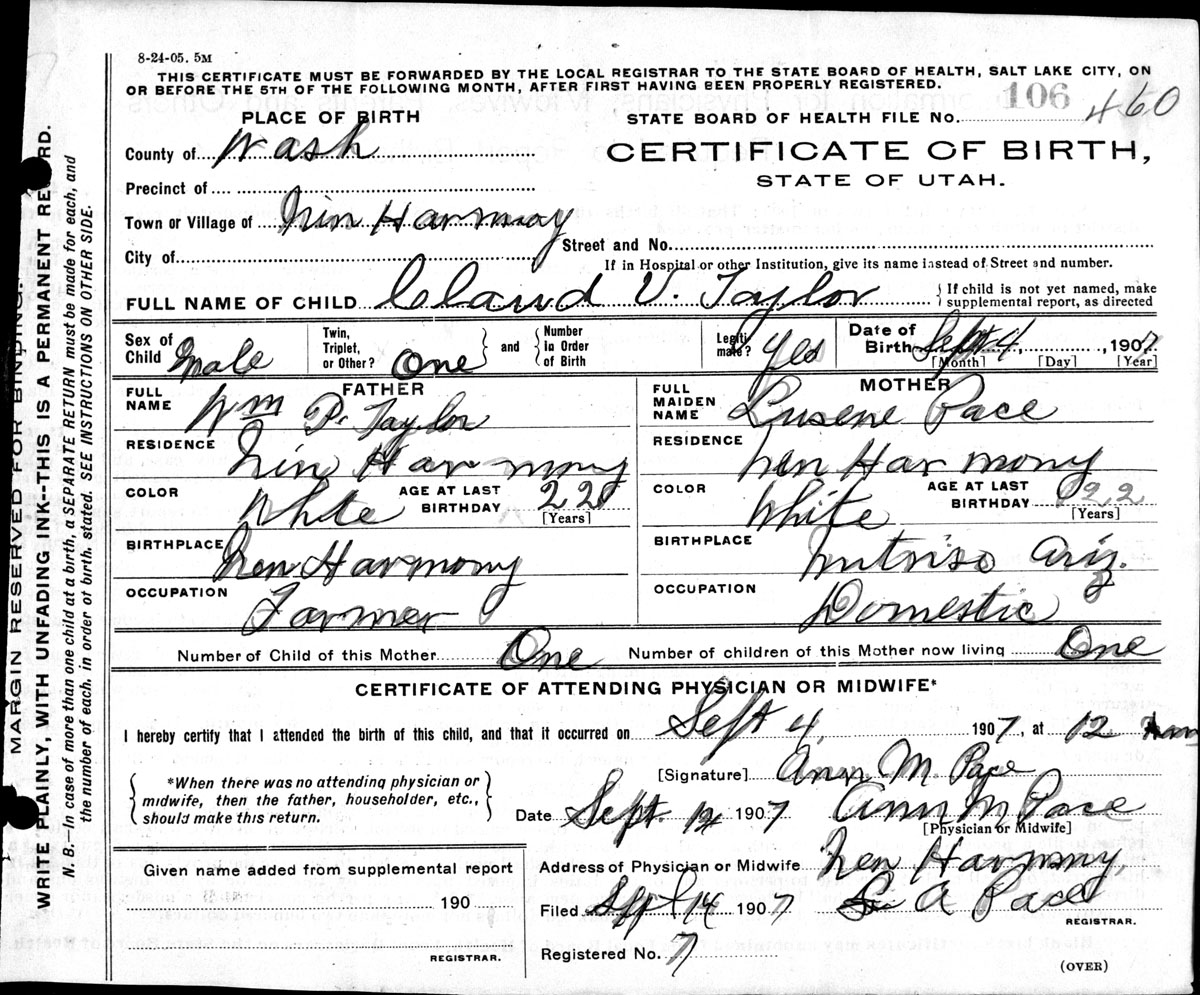 8-24-05. 5M
THIS CERTIFICATE MUST BE FORWARDED BY THE LOCAL REGISTRAR TO THE STATE BOARD OF HEALTH, SALT LAKE CITY, ON
OR BEFORE THE 5TH OF THE FOLLOWING MONTH, AFTER FIRST HAVING BEEN PROPERLY REGISTERED.
PLACE OF BIRTH
STATE BOARD OF HEALTH FILE No. 106 460
County of Wash
CERTIFICATE OF BIRTH,
STATE OF UTAH.
Precinct of
Town or Village of Nin Harmony
Street and No.
City of
If in Hospital or other Institution, give its name instead of Street and number.
FULL NAME OF CHILD Claud V. Taylor
If child is not yet named, make
supplemental report, as directed
Sex of Child Male
Twin, Triplet, or Other? One and Number In Order of Birth
Legiti mate? Yes
Date of Birth Sept 4, 1907
[Month] [Day] [Year]
FATHER
FULL NAME Wm P. Taylor
RESIDENCE Nin Harmony
COLOR White AGE AT LAST BIRTHDAY 22
[Years]
BIRTHPLACE Nen Harmony
OCCUPATION Farmer
MOTHER
FULL MAIDEN NAME Lusene Pace
RESIDENCE Nen Harmony
COLOR White AGE AT LAST BIRTHDAY 22
[Years]
BIRTHPLACE Nutriso Ariz.
OCCUPATION Domestic
Number of Child of this Mother One Number of children of this Mother now living One
CERTIFICATE OF ATTENDING PHYSICIAN OR MIDWIFE*
I hereby certify that I attended the birth of this child, and that it occurred on Sept 4, 1907, at 12
*When there was no attending physician or
midwife, then the father, householder, etc.,
should make this return.
[Signature] Ann M. Pace
Date Sept. 12 1907 Ann M Pace
[Physician or Midwife]
Address of Physician or Midwife Nen Harmony
Given name added from supplemental report
190
REGISTRAR.
Filed Sept 14 1907 A Pace
REGISTRAR.
Registered No. 7
(OVER)
MARGIN RESERVED FOR BINDING.
WRITE PLAINLY, WITH UNFADING INK--THIS IS A PERMANENT RECORD.
N. B.--In case of more than one child at a birth, a SEPARATE RETURN must be made for each, and
the number of each, in order of birth, stated. SEE INSTRUCTIONS ON OTHER SIDE.